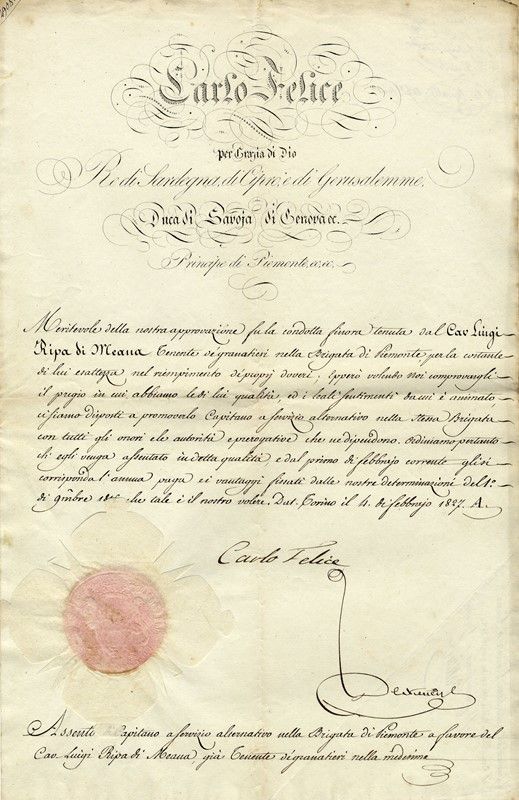 Carlo Felice
per Grazia di Dio
Re di Sardegna, di Cipro, e di Gerusalemme,
Duca di Savoja di Genova ec.
Principe di Piemonte, ec. ec.
Meritevole della nostra approvazione fu la condotta finora tenuta dal Cav. Luigi
Ripa di Meana Tenente de' granatieri nella Brigata di Piemonte per la costante
di lui esattezza nel riempimento de' proprj doveri. Epperò volendo Noi comprovargli
il pregio in cui abbiamo le di lui qualità, ed i leali sentimenti da cui è animato
ci siamo disposti a promoverlo Capitano a servizio alternativo nella stessa Brigata
con tutti gli onori, le autorità e prerogative che ne dipendono. Ordiniamo pertanto
ch' egli venga assentato in detta qualità e dal primo di febbrajo corrente gli si
corrisponda l' annua paga e i vantaggi fissati dalle nostre determinazioni del 1.º
di 9mbre che tale è il nostro volere. Dat. Torino il 4. di febbrajo 1827. A.
Carlo Felice
Assento Capitano a servizio alternativo nella Brigata di Piemonte a favore del
Cav. Luigi Ripa di Meana già Tenente de' granatieri nella medesima